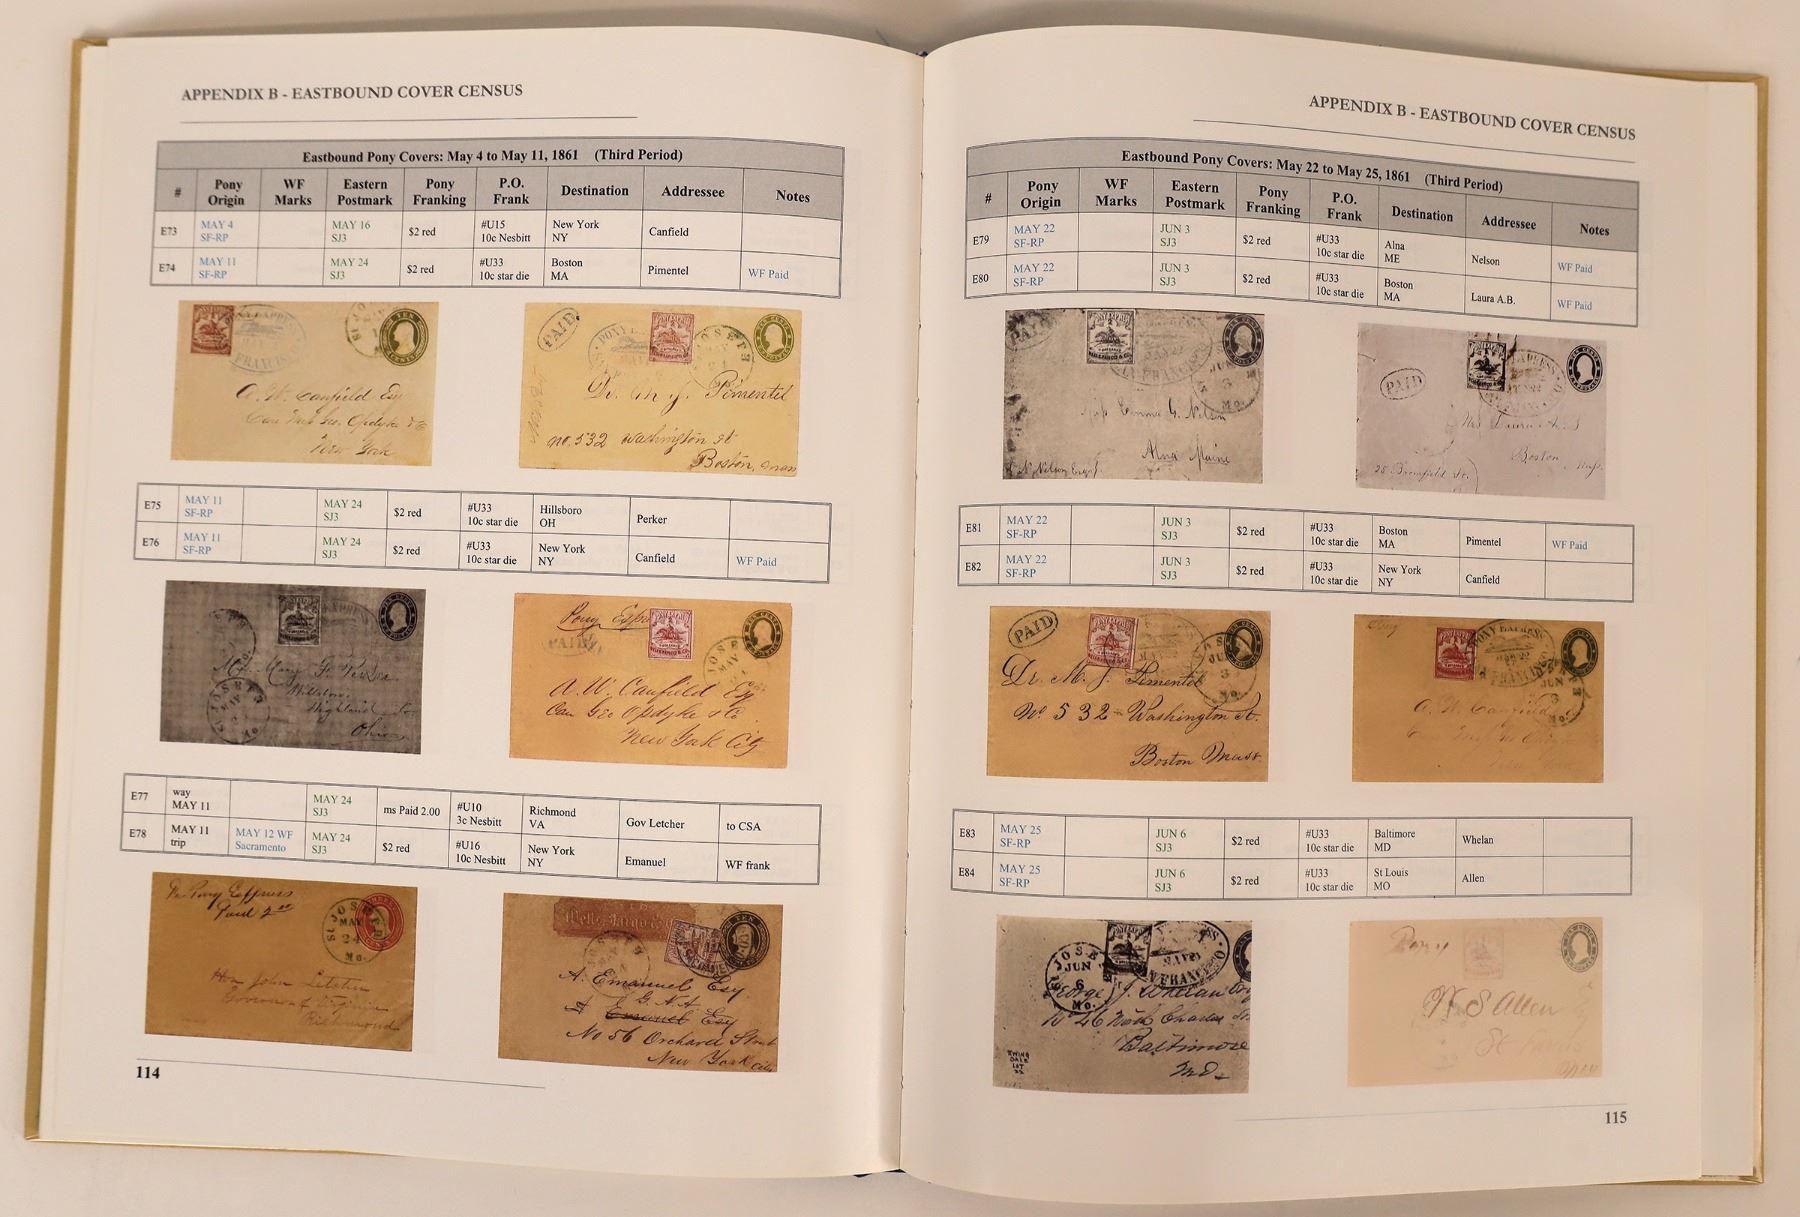 APPENDIX B - EASTBOUND COVER CENSUS
Eastbound Pony Covers: May 4 to May 11, 1861 (Third Period)
# Pony Origin WF Marks Eastern Postmark Pony Franking P.O. Frank Destination Addressee Notes
E73 MAY 4 SF-RP MAY 16 SJ3 $2 red #U15 10c Nesbitt New York NY Canfield
E74 MAY 11 SF-RP MAY 24 SJ3 $2 red #U33 10c star die Boston MA Pimentel WF Paid
A. W. Canfield Esq
New York
PAID
Dr. M. J. Pimentel
No. 532 Washington St
Boston, Mass
E75 MAY 11 SF-RP MAY 24 SJ3 $2 red #U33 10c star die Hillsboro OH Perker
E76 MAY 11 SF-RP MAY 24 SJ3 $2 red #U33 10c star die New York NY Canfield WF Paid
Highland Co
Ohio
Pony Express
PAID
A. W. Canfield Esq
Care Geo Opdyke & Co
New York City
E77 way MAY 11 MAY 24 SJ3 ms Paid 2.00 #U10 3c Nesbitt Richmond VA Gov Letcher to CSA
E78 MAY 11 trip MAY 12 WF Sacramento MAY 24 SJ3 $2 red #U16 10c Nesbitt New York NY Emanuel WF frank
Pony Express
Paid 2.00
ST JOSEPH
MAY
24
Mo.
Hon John Letcher
Governor of Virginia
Richmond
Wells, Fargo & Co
A. Emanuel Esq
Emanuel Esq
No 56 Orchard Street
New York City
114
APPENDIX B - EASTBOUND COVER CENSUS
Eastbound Pony Covers: May 22 to May 25, 1861 (Third Period)
# Pony Origin WF Marks Eastern Postmark Pony Franking P.O. Frank Destination Addressee Notes
E79 MAY 22 SF-RP JUN 3 SJ3 $2 red #U33 10c star die Alna ME Nelson WF Paid
E80 MAY 22 SF-RP JUN 3 SJ3 $2 red #U33 10c star die Boston MA Laura A.B. WF Paid
PAID
G. Nelson
Alna Maine
PAID
Boston, Mass.
25 Bromfield St.
E81 MAY 22 SF-RP JUN 3 SJ3 $2 red #U33 10c star die Boston MA Pimentel WF Paid
E82 MAY 22 SF-RP JUN 3 SJ3 $2 red #U33 10c star die New York NY Canfield
PAID
Dr. M. J. Pimentel
No 532 Washington St.
Boston Mass.
Pony
PONY EXPRESS
A. W. Canfield
E83 MAY 25 SF-RP JUN 6 SJ3 $2 red #U33 10c star die Baltimore MD Whelan
E84 MAY 25 SF-RP JUN 6 SJ3 $2 red #U33 10c star die St Louis MO Allen
JUN
6
Mo.
George J. Whelan Esq
No 26 North Charles St
Baltimore
Md.
Pony
W S Allen
St Louis
115